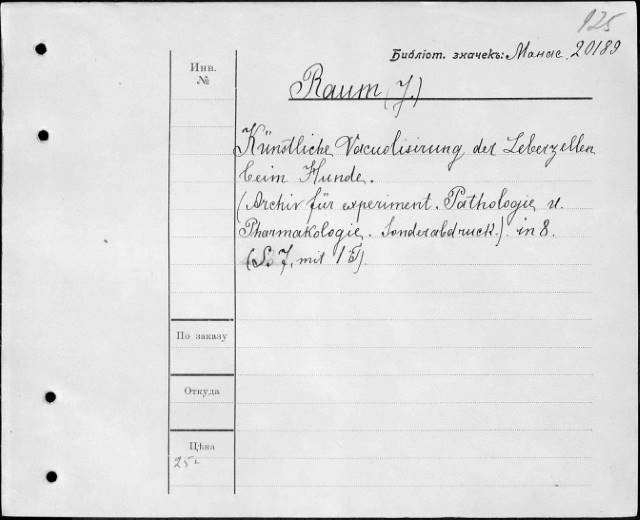 125
Библіот. значекъ: Манас. 20189
Инв.
№
Raum (J.)
Künstliche Vacuolisirung der Leberzellen
beim Hunde.
(Archiv für experiment. Pathologie u.
Pharmakologie. Sonderabdruck.) in 8.
(S. 7, mit 1
По заказу
Откуда
Цѣна
25